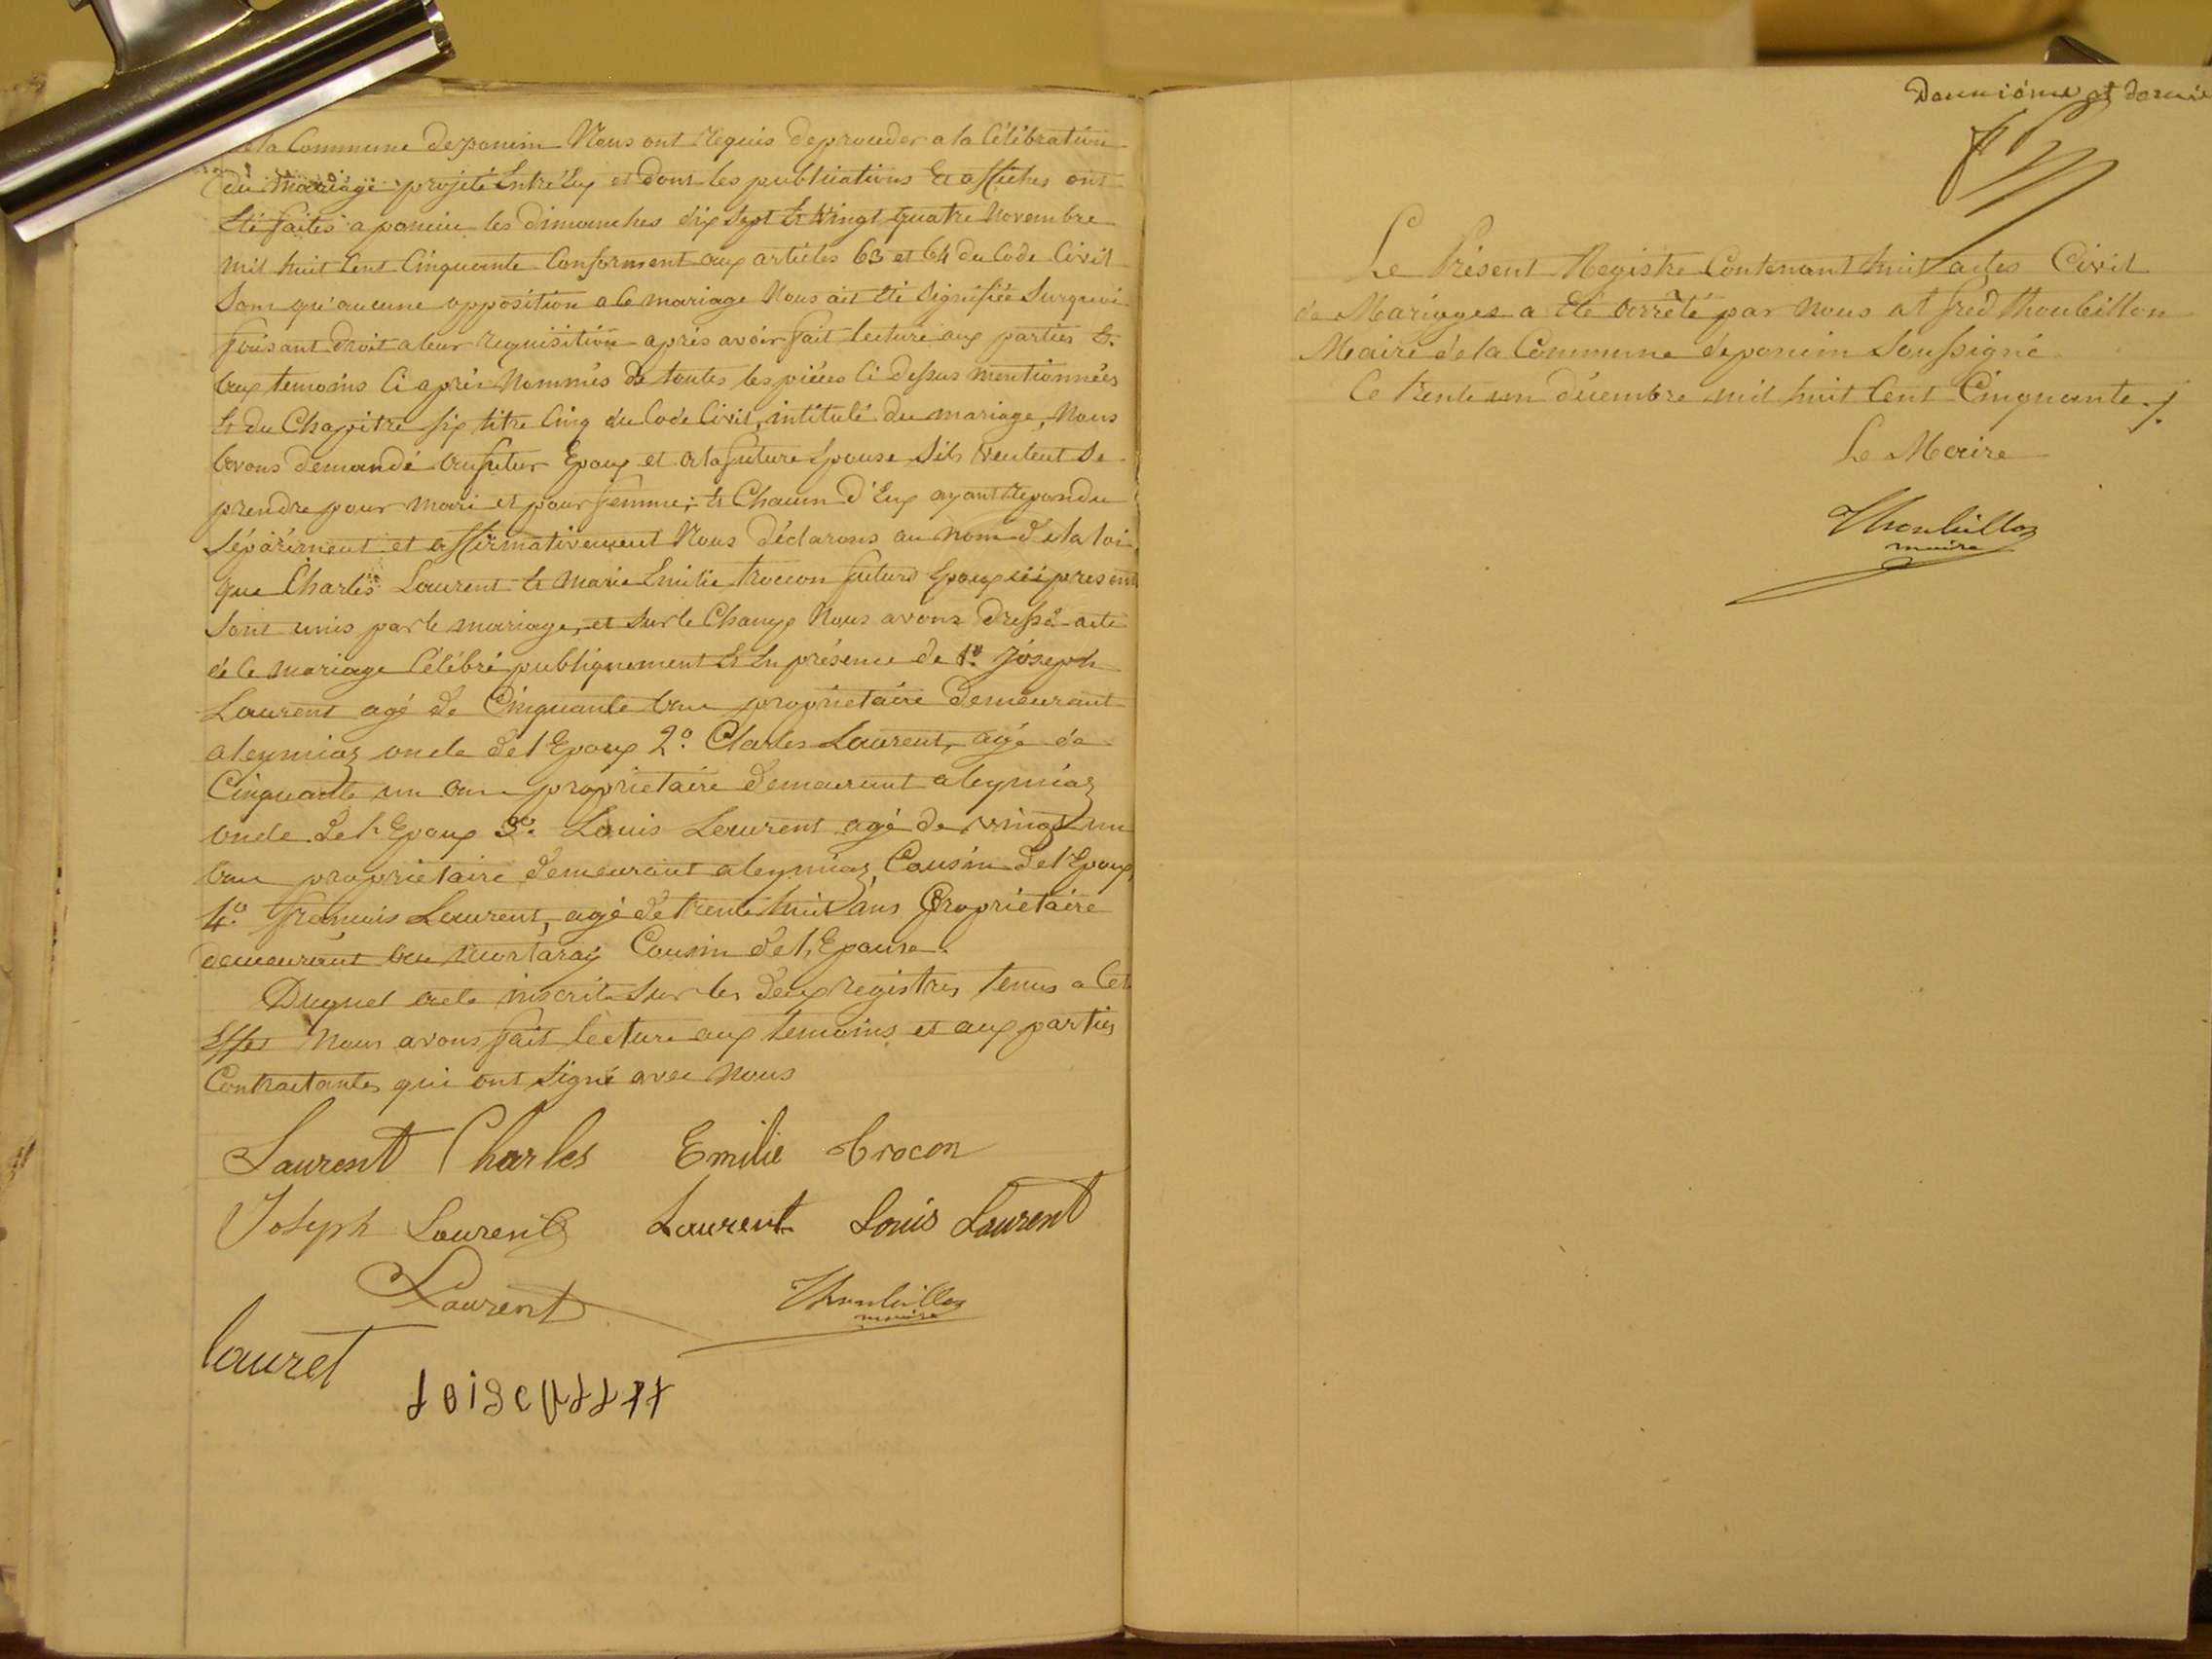 de la Commune de poncin Nous ont requis de proceder a la Célébration
du mariage projeté Entr'Eux et dont les publications Et affiches ont
Eté faites a poncin les dimanches dix sept Et Vingt quatre Novembre
mil huit Cent Cinquante Conforment aux articles 63 et 64 du Code Civil
Sans qu'aucune opposition a Ce mariage Nous ait Eté Signifiée Surquoi
faisant droit a leur requisition après avoir fait lecture aux parties Et
aux temoins Ci après Nommés de toutes les pièces Ci dessus mentionnées
Et du Chapitre six titre Cinq du Code Civil, intitulé du mariage, Nous
avons demandé au futur Epoux et a la future Epouse Sils veulent Se
prendre pour mari et pour femme; Et Chacun d'Eux ayant repondu
Séparément et affirmativement Nous déclarons au nom de la loi
que Charles Laurent Et Marie Emilie trocon futurs Epoux ici present
Sont unis par le mariage, et sur le Champ Nous avons dressé acte
de Ce mariage Célébré publiquement Et En présence de 1º Joseph
Laurent agé de Cinquante ans propriétaire demeurant
a leymiaz oncle de l'Epoux 2º Charles Laurent, agé de
Cinquante un ans propriétaire demeurant a leymiaz
oncle de l'Epoux 3º Louis Laurent agé de vingt un
ans propriétaire demeurant a leymiaz, Cousin de l'Epoux
4º françois Laurent, agé de trente huit ans Propriétaire
demeurant au mortaray Cousin de l'Epouse.
Duquel acte inscrit Sur les deux registres tenus a Cet
Effet Nous avons fait lecture aux temoins et aux parties
Contractantes qui ont Signé avec Nous
Laurent Charles Emilie trocon
Joseph Laurent Laurent Louis Laurent
Laurent Thoubillon
maire
lauret
et dernier
Le Présent Registre Contenant huit actes Civil
de Mariages a Eté arrêté par Nous alfred thoubillon
Maire de la Commune de poncin Soussigné
Ce trente un décembre mil huit Cent Cinquante
Le Maire
Thoubillon
maire